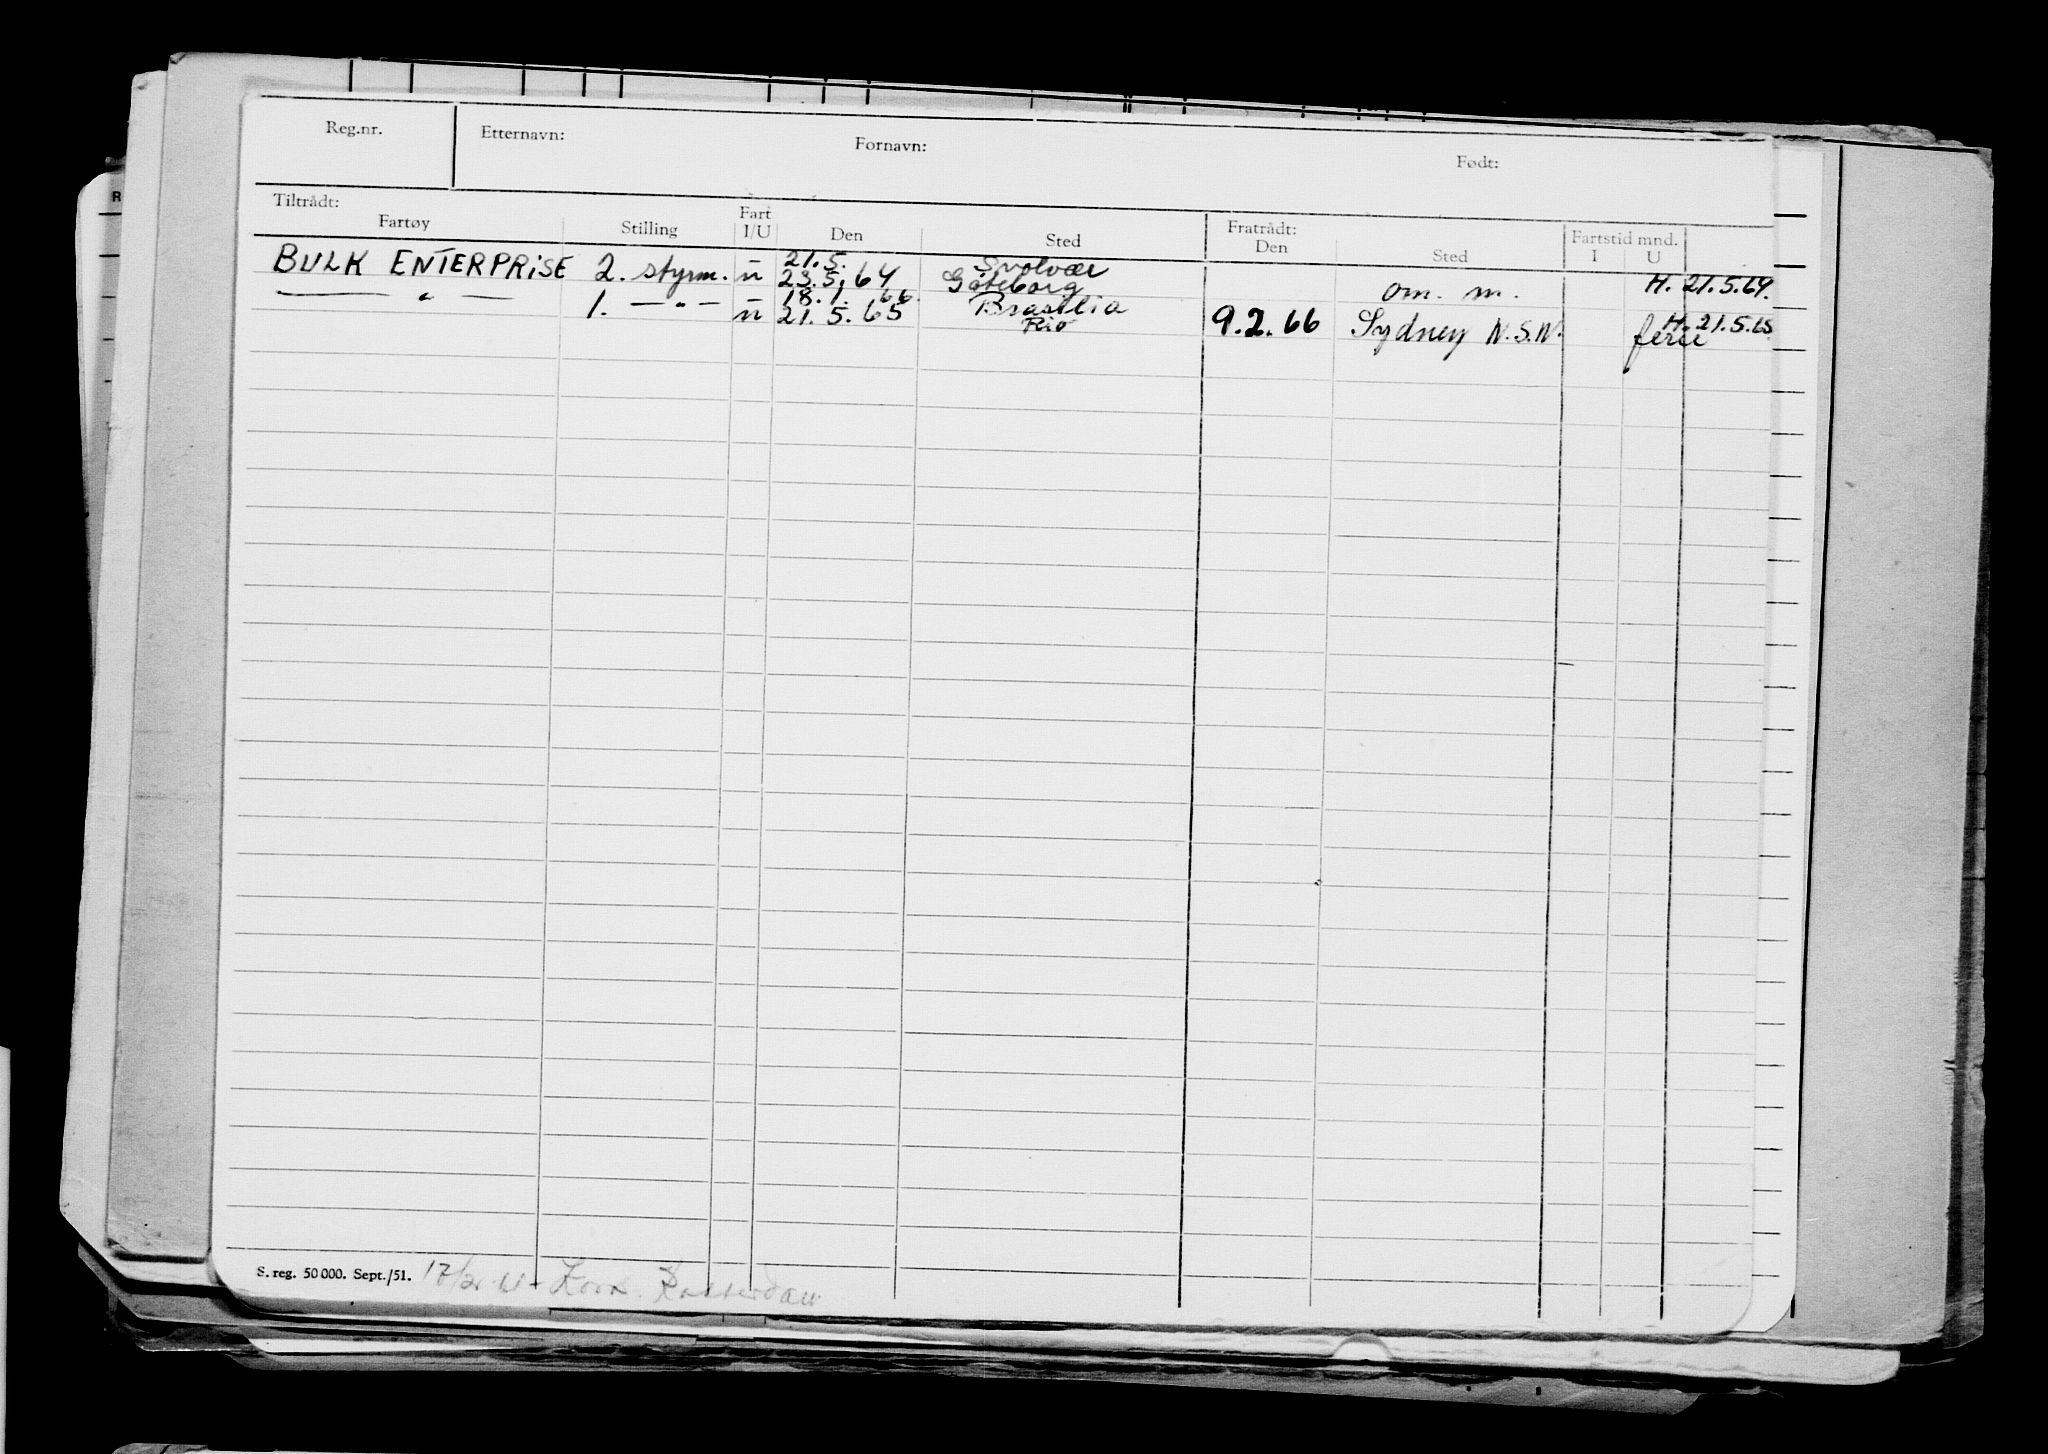 Reg.nr. Etternavn: Fornavn: Født:
Tiltrådt: Fratrådt:
Fartøy Stilling Fart I/U Den Sted Den Sted Fartstid mnd. I U
21.5. Svolvær
BULK ENTERPRISE 2. styrm. u 23.5.64 Göteborg om. m. H. 21.5.64.
— " — 1. — " — 18.1.66. Brasilia H. 21.5.65
u 21.5.65 Rio 9.2.66 Sydney N.S.W. ferie
S. reg. 50 000. Sept./51. Rotterdam
R